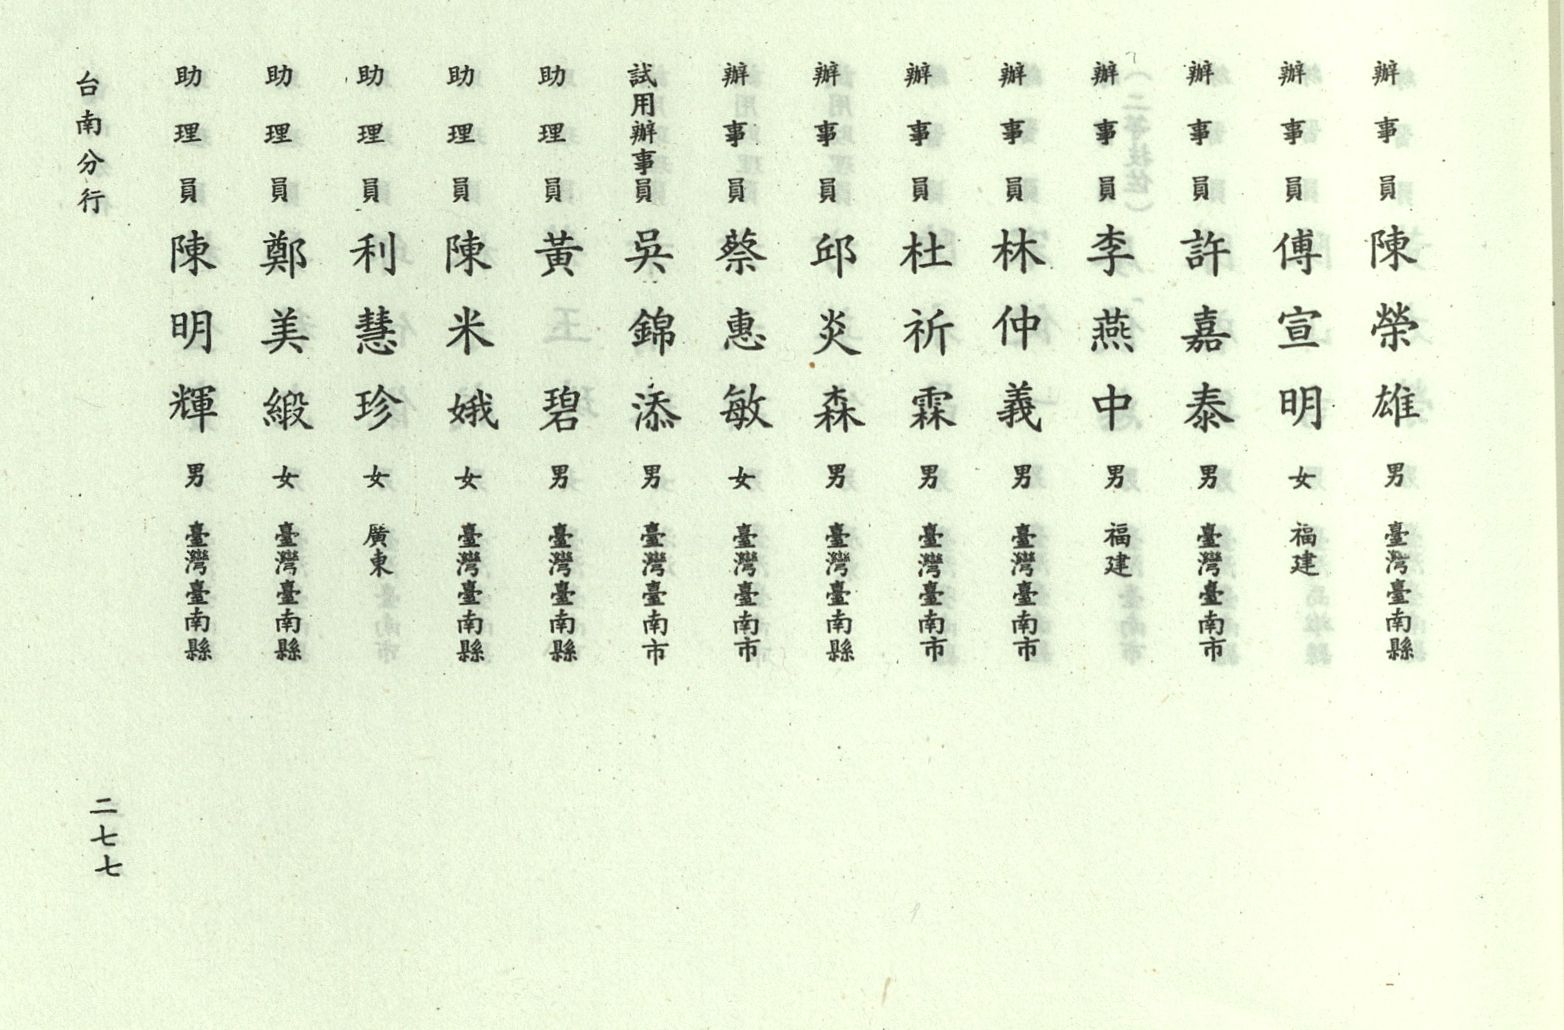 辦事員 陳榮雄 男 臺灣臺南縣
辦事員 傅宣明 女 福建
辦事員 許嘉泰 男 臺灣臺南市
辦事員 李燕中 男 福建
辦事員 林仲義 男 臺灣臺南市
辦事員 杜祈霖 男 臺灣臺南市
辦事員 邱炎森 男 臺灣臺南縣
辦事員 蔡惠敏 女 臺灣臺南市
試用辦事員 吳錦添 男 臺灣臺南市
助理員 黃碧 男 臺灣臺南縣
助理員 陳米娥 女 臺灣臺南縣
助理員 利慧珍 女 廣東
助理員 鄭美緞 女 臺灣臺南縣
助理員 陳明輝 男 臺灣臺南縣
台南分行
二七七